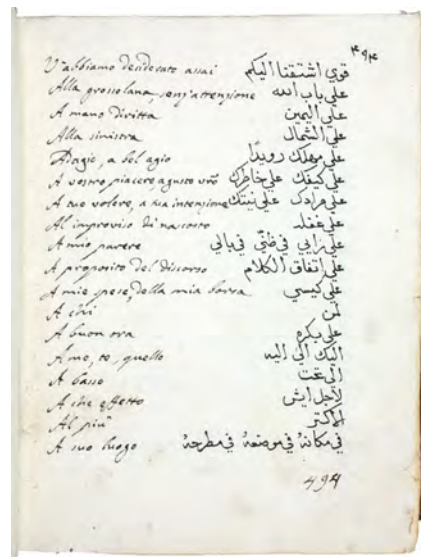 ٤٩٤
V'abbiamo desiderato assai قوي اشتقنا اليكم
Alla grossolana, senz'attenzione علي باب الله
A mano diritta علي اليمين
Alla sinistra علي الشمال
Adagio, a bel agio علي مهلك رويدا
A vostro piacere, a gusto vr̃o علي كيفك علي خاطرك
A tuo volere, a tua intenzione علي مرادك علي نيتك
Al improviso di nascosto علي غفله
A mio parere علي رايي في ظنّي في بالي
A proposito del discorso علي اتفاق الكلام
A mie spese, della mia borsa علي كيسي
A chi لمن
A buon ora علي بكره
A me, te, quello اليك الي اليه
A basso الي تحت
A che effetto لاجل ايش
Al più الاكتر
A suo luogo في مكانهُ في موضعهُ في مطرحهُ
494